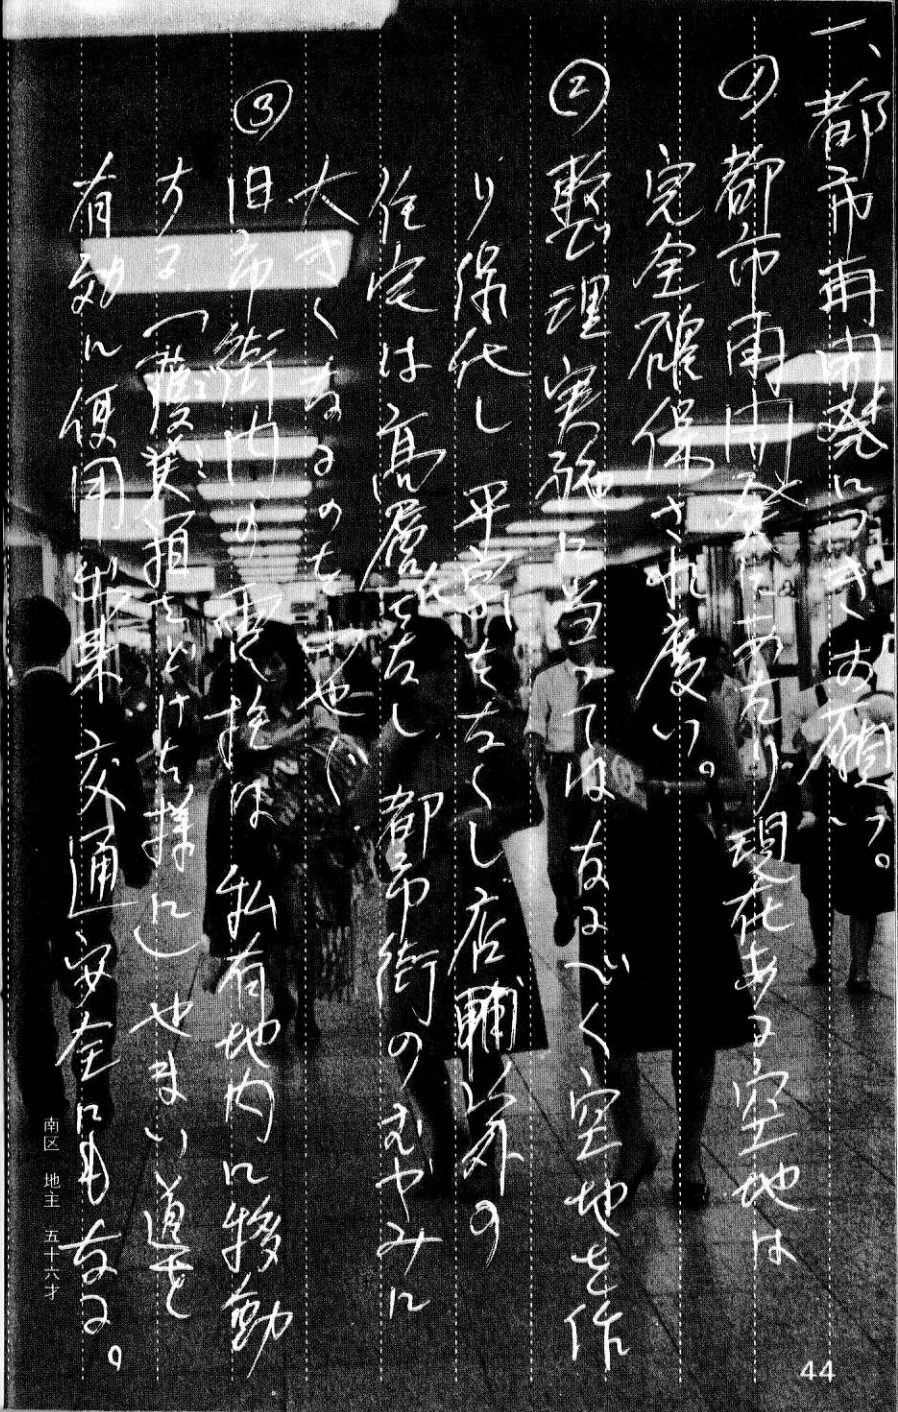 一、都市再開発につきお願い。
①都市再開発にあたり現在ある空地は
完全確保され度い。
②整理実施に当っては なるべく空地を作
り保代し 平家をなくし店輔以外の
住宅は高層をなし 都市街のむやみに
大きくなるのを
③旧市街内の電柱は 私有地内に移動
する(度美損をどけち様に)せまい道を
有効に使用出来 交通安全にもなる。
南区 地主 五十六才
44